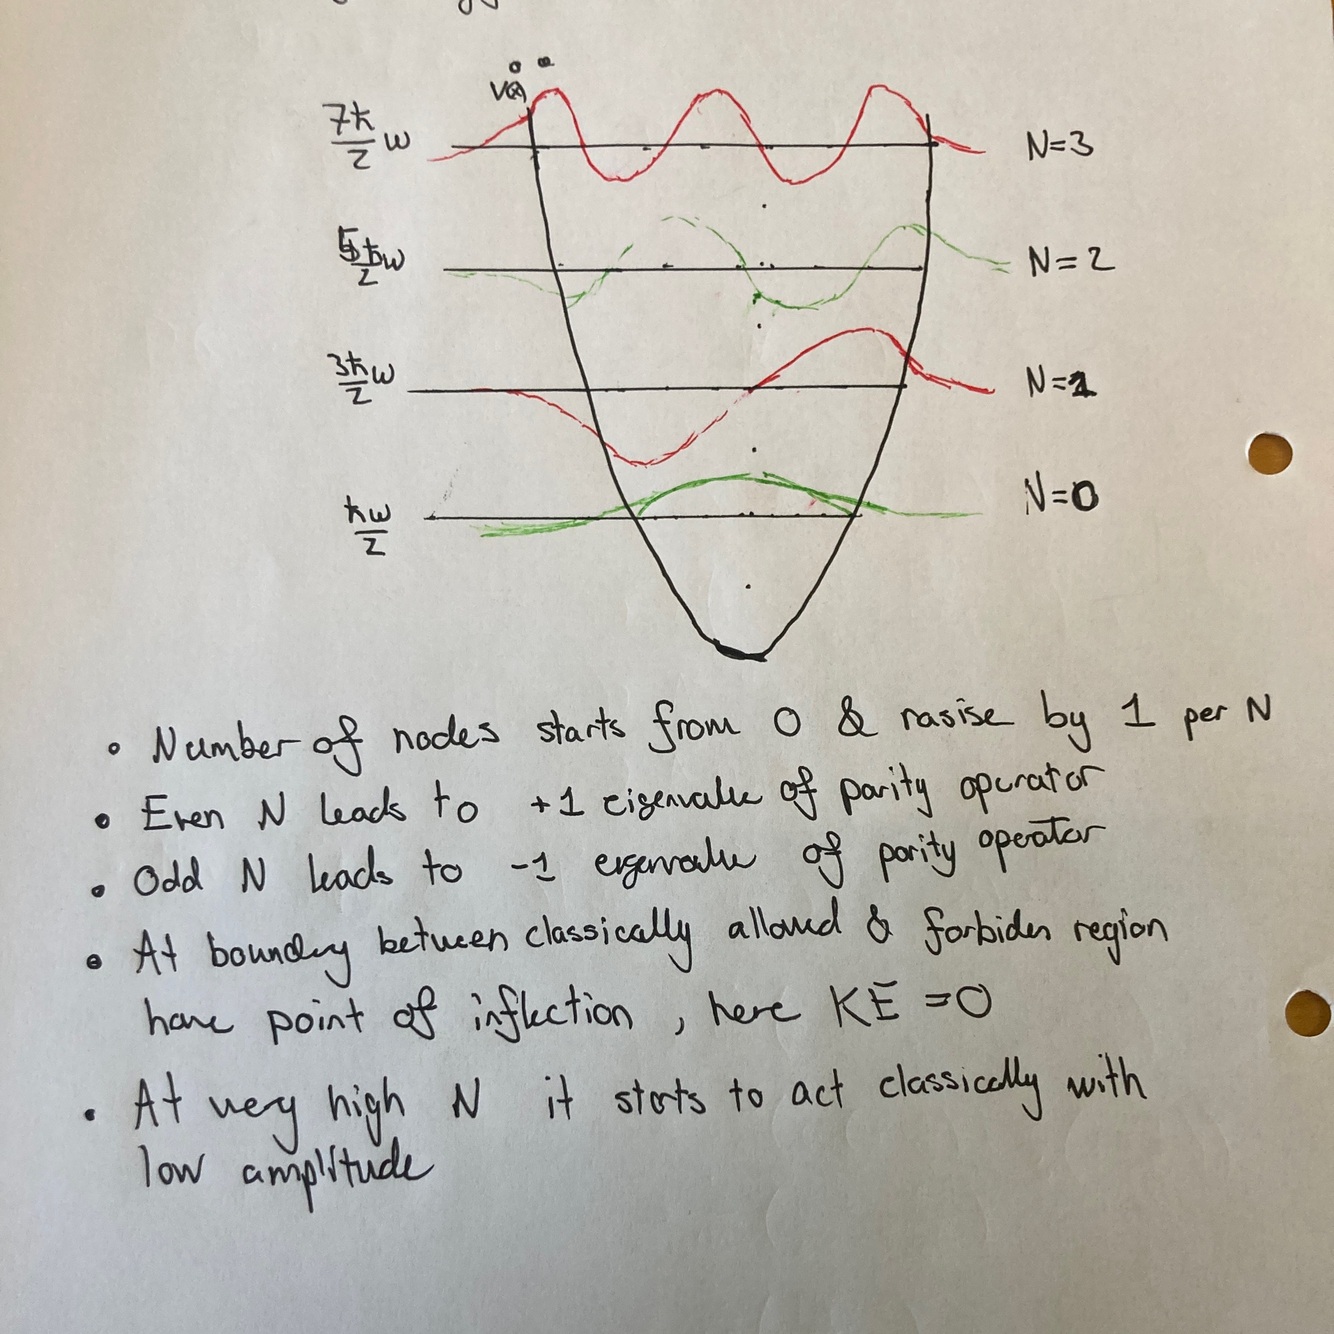 V(x)
7ħ/2 ω N=3
5ħ/2 ω N=2
3ħ/2 ω N=1
ħω/2 N=0
• Number of nodes starts from 0 & rasise by 1 per N
• Even N leads to +1 eigenvalue of parity operator
• Odd N leads to -1 eigenvalue of parity operator
• At boundry between classically allowed & forbiden region
have point of inflection , here KE =0
• At very high N it starts to act classically with
low amplitude